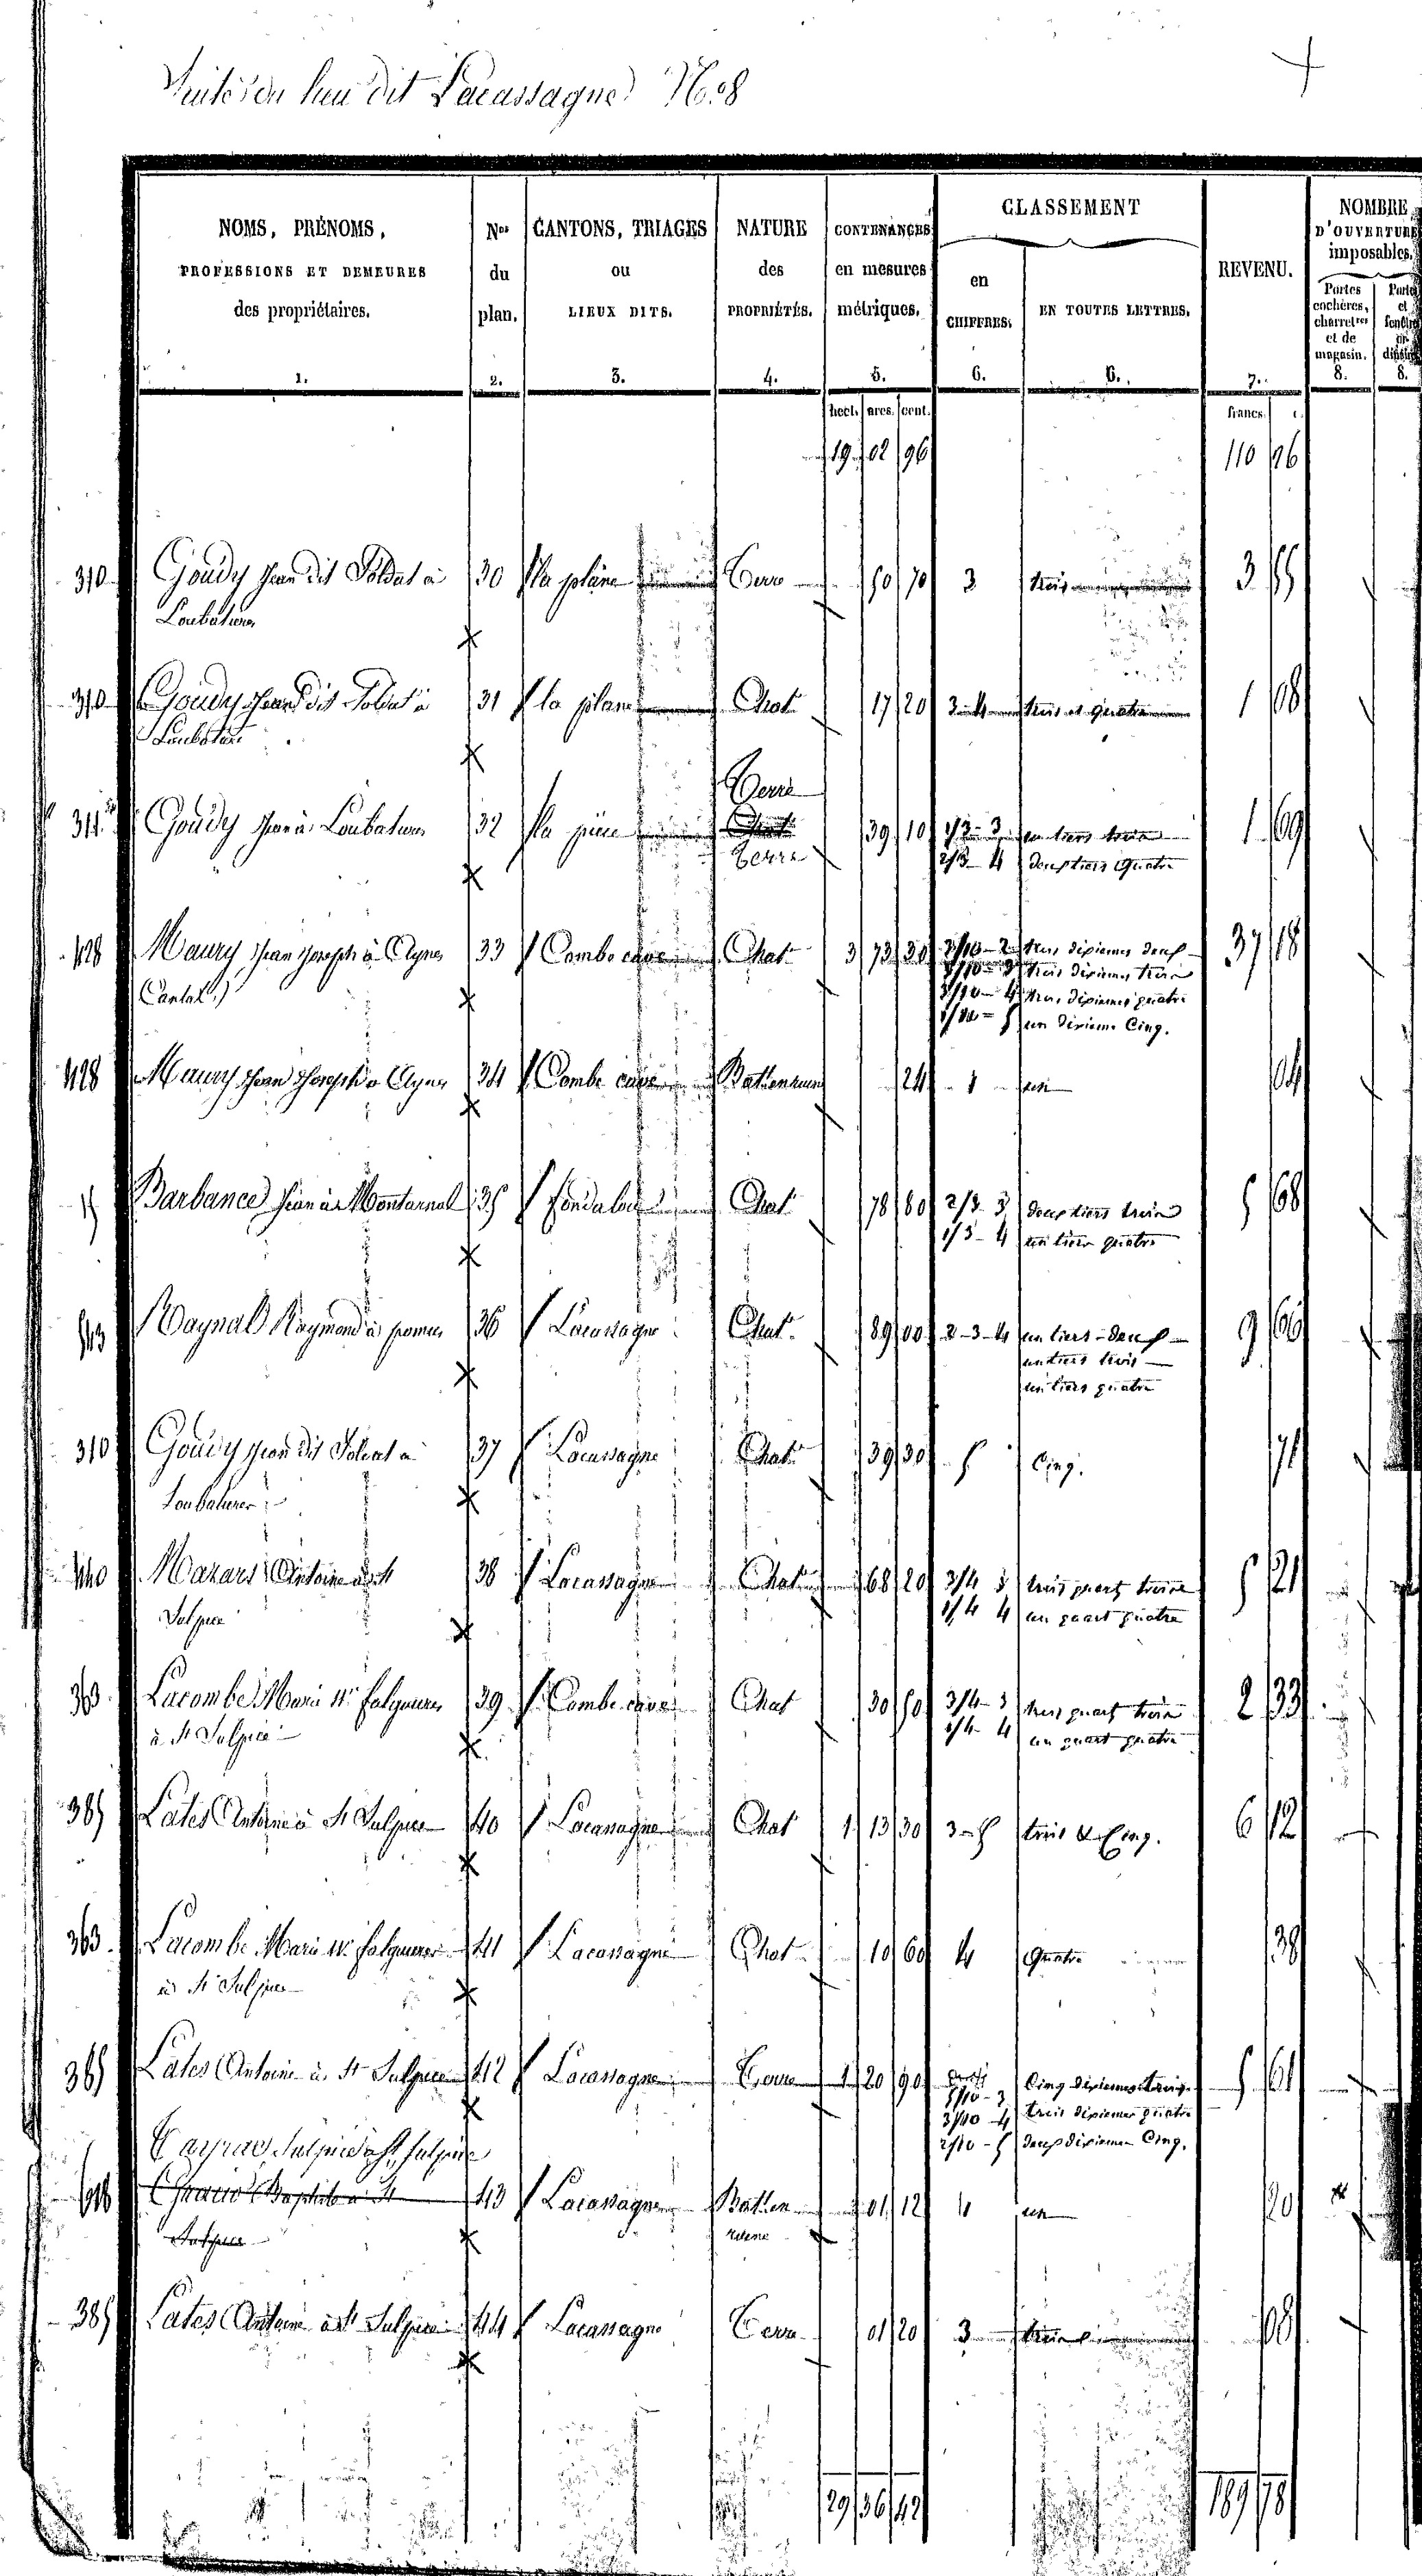 Suite du lieu dit Lacassagne N.º 8
NOMS, PRÉNOMS, PROFESSIONS ET DEMEURES des propriétaires. 1.
Nos du plan. 2.
CANTONS, TRIAGES ou LIEUX DITS. 3.
NATURE des PROPRIÉTÉS. 4.
CONTENANCES en mesures métriques. 5.
CLASSEMENT
en CHIFFRES. 6.
EN TOUTES LETTRES. 6.
REVENU. 7.
NOMBRE D'OUVERTURES imposables.
Portes cochères, charretres et de magasin. 8.
Portes et 8.
hect. ares. cent. francs. c.
19 02 96 110 96
310 Goudy Jean dit Soldat à 30 la plaine Terre 50 70 3 trois 3 55
Loubatieres
310 Goudy Jean dit Soldat à 31 la plaine Chat. 17 20 3-4 trois et quatre 1 08
Terre
311 Goudy Jean à Loubatieres 32 Chat. 39 10 1/3-3 un tiers trois 1 69
terre 2/3-4 deux tiers quatre
428 Maury Jean Joseph à 33 Combe cave Chat. 3 73 30 3/10-2 trois dixiemes deux 37 18
(Cantal) 3/10-3 trois dixiemes trois
3/10-4 trois dixiemes quatre
1/10-5 un dixieme Cinq.
428 Maury Jean Joseph à 34 Combe cave 24 1 un 04
15 Barbance Jean à Montarnal 35 Chat. 78 80 2/3 3 deux tiers trois 5 68
1/3-4 un tiers quatre
543 Raynal Raymond à 36 Lacassagne Chat. 89 00 2-3-4 un tiers deux 9 66
un tiers trois
un tiers quatre
310 Goudy Jean dit Soldat à 37 Lacassagne Chat. 39 30 5 Cinq. 71
Loubatieres
440 Mazars Antoine à St 38 Lacassagne Chat. 68 20 3/4 3 trois quarts trois 5 21
Sulpice 1/4 4 un quart quatre
363 Lacombe Marie Ve Falguieres 39 Combe cave Chat 30 50 3/4-3 trois quarts trois 2 33
à St Sulpice 1/4-4 un quart quatre
385 Lates Antoine à St Sulpice 40 Lacassagne Chat 1 13 30 3-5 trois & Cinq. 6 12
363 Lacombe Marie Ve Falguieres 41 Lacassagne Chat. 10 60 4 Quatre 39
à St Sulpice
385 Lates Antoine à St Sulpice 42 Lacassagne Terre 1 20 90 5/10-3 Cinq dixiemes trois 5 61
3/10-4 trois dixiemes quatre
2/10-5 deux dixiemes Cinq.
Sulpice à St Sulpice
Baptiste à St 43 Lacassagne 01 12 1 un 20
Sulpice
385 Lates Antoine à St Sulpice 44 Lacassagne Terre 01 20 3 trois 08
29 36 42 189 78